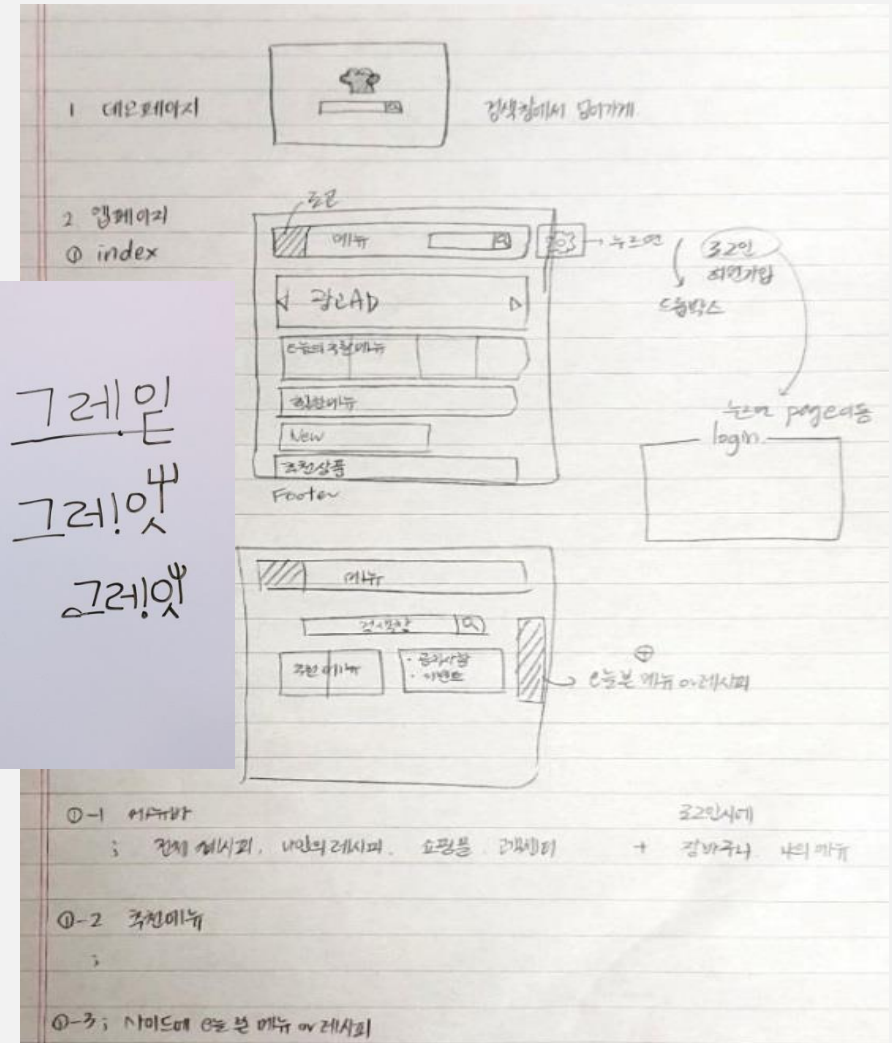 1 대문페이지
검색창에서 넘어가게
2 웹페이지
① index
로고
메뉴
누르면
로그인
회원가입
드롭박스
광고AD
오늘의 추천메뉴
New
추천상품
Footer
누르면 page이동
login
그레잍
그레!잇
그레!잇
메뉴
검색창
추천메뉴
· 공지사항
· 이벤트
오늘 본 메뉴 or 레시피
①-1 메뉴바
; 전체 레시피, 나만의 레시피, 쇼핑몰, 고객센터
로그인시에
+ 장바구니, 나의 메뉴
①-2 추천메뉴
;
①-3 ; 사이드에 오늘 본 메뉴 or 레시피